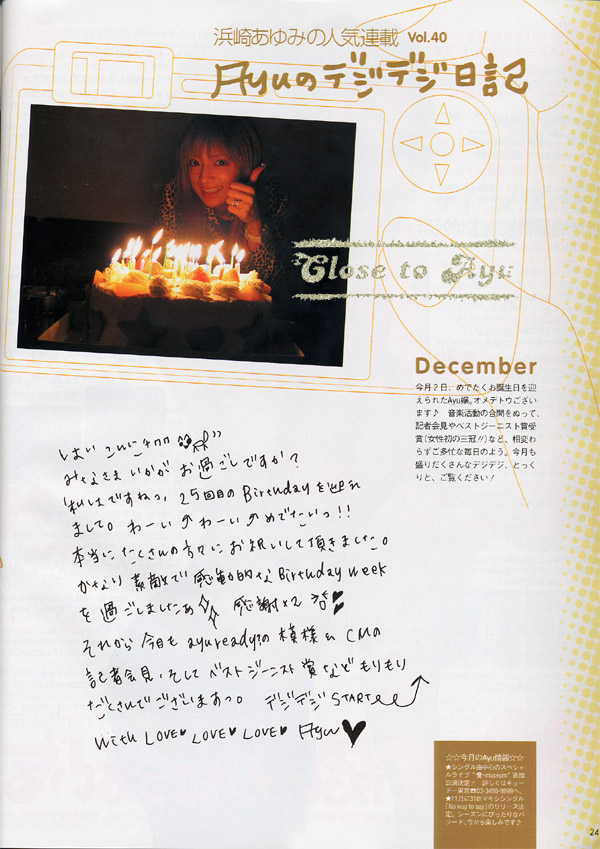 浜崎あゆみの人気連載 Vol.40
Ayuのデジデジ日記
Close to Ayu
December
今月２日、めでたくお誕生日を迎
えられたAyu嬢。オメデトウござい
ます♪　音楽活動の合間をぬって、
記者会見やベストジーニスト賞受
賞(女性初の三冠!!)など、相変わ
らずご多忙な毎日のよう。今月も
盛りだくさんなデジデジ、とっく
りと、ご覧ください！
はいこんにチワワ
みなさまいかがお過ごしですか？
私はですねっ、25回目のBirthdayを迎え
まして。わーいわーいのめでたいっ!!
本当にたくさんの方々にお祝いして頂きました。
かなり素敵で感動的なBirthday week
を過ごしましたぁ☆ 感謝×2
それから今月もayuready?の模様&CMの
記者会見、そしてベストジーニスト賞などもりもり
だくさんでございまあっ。 デジデジSTART
with LOVE♥ LOVE♥ LOVE♥ Ayu♥
☆☆今月のAyu情報☆☆
★シングル曲中心のスペシャ
ルライブ"-museum"追加
公演決定！　詳しくはキョー
ドー東京☎03-3498-9999へ。
★11月に31thマキシシングル
「No way to say」のリリース決
定。シーズンにぴったりなバ
ラード。今から楽しみです♪
24